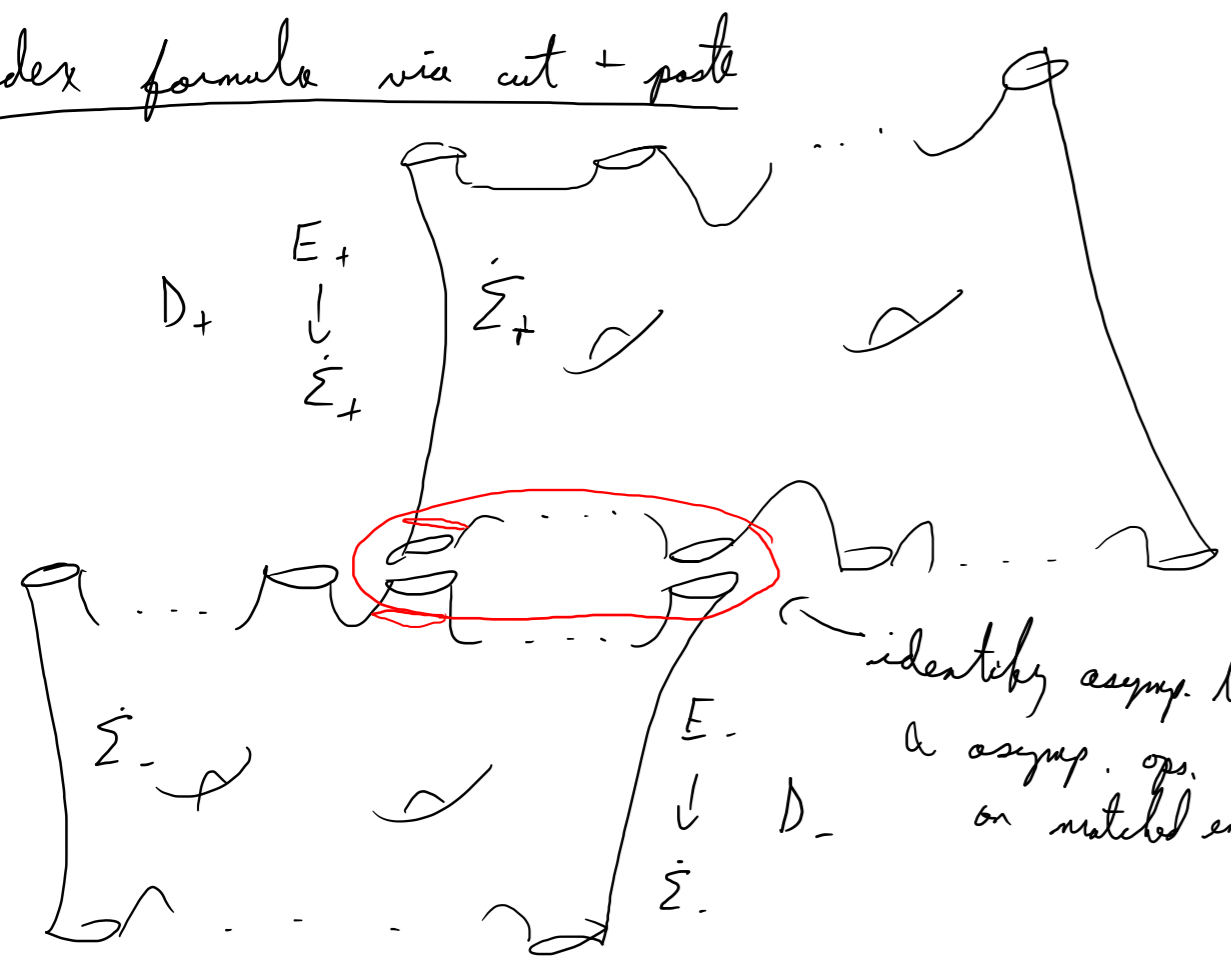 dex formula via cut + paste
E₊
D₊ ↓ Σ̇₊
Σ̇₊
identify asymp.
Σ̇₋ E₋
& asymp. ops.
↓ D₋ on matched
Σ̇₋